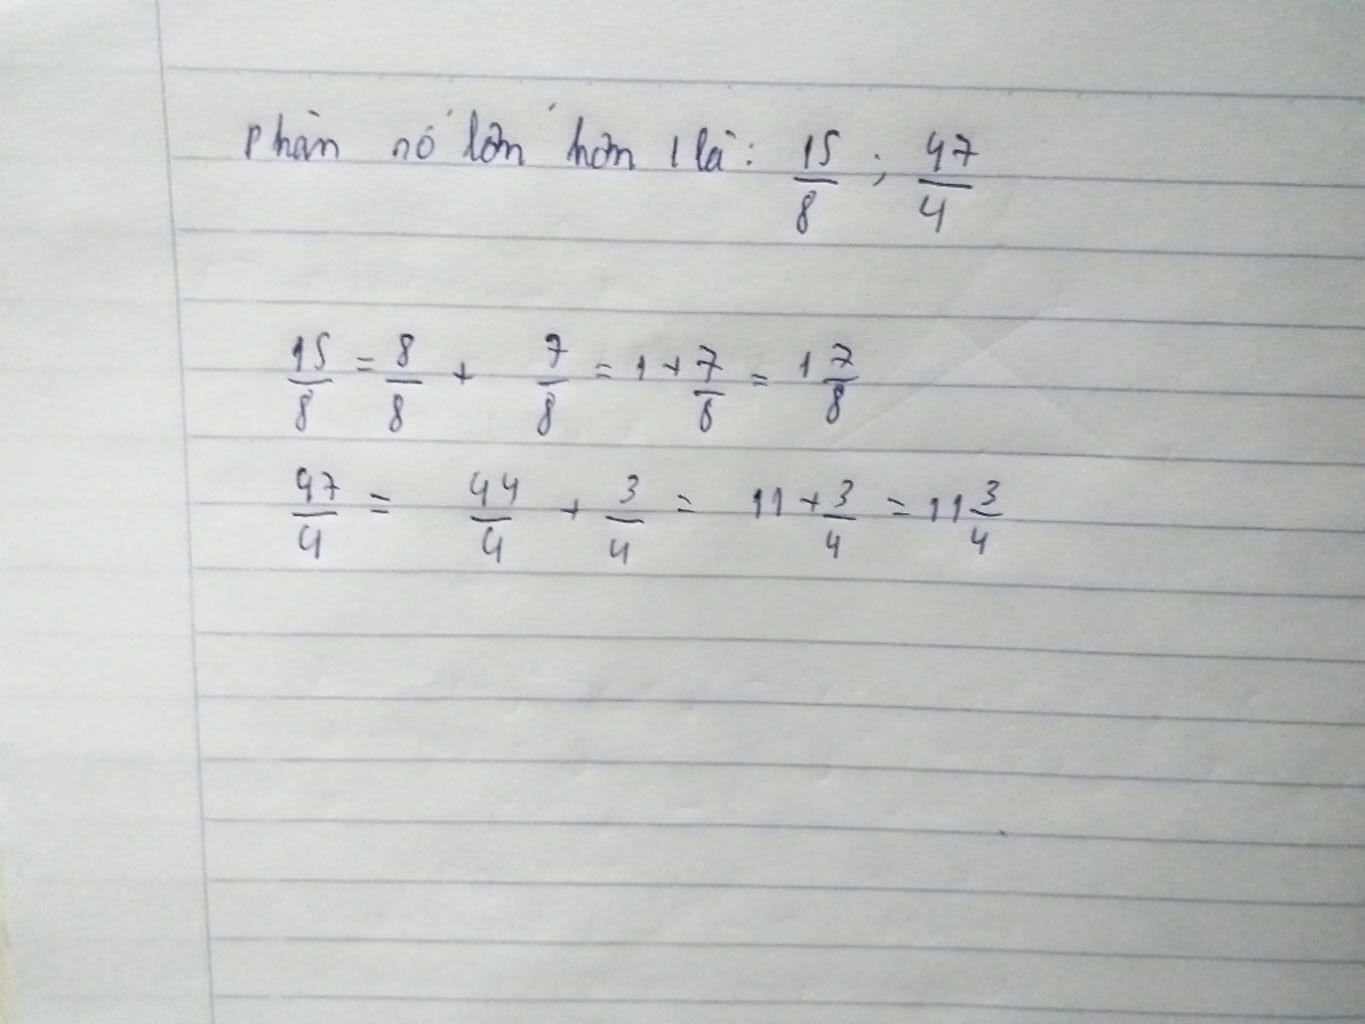 Phân số lớn hơn 1 là: 15/8 ; 47/4
15/8 = 8/8 + 7/8 = 1 + 7/8 = 1 7/8
47/4 = 44/4 + 3/4 = 11 + 3/4 = 11 3/4